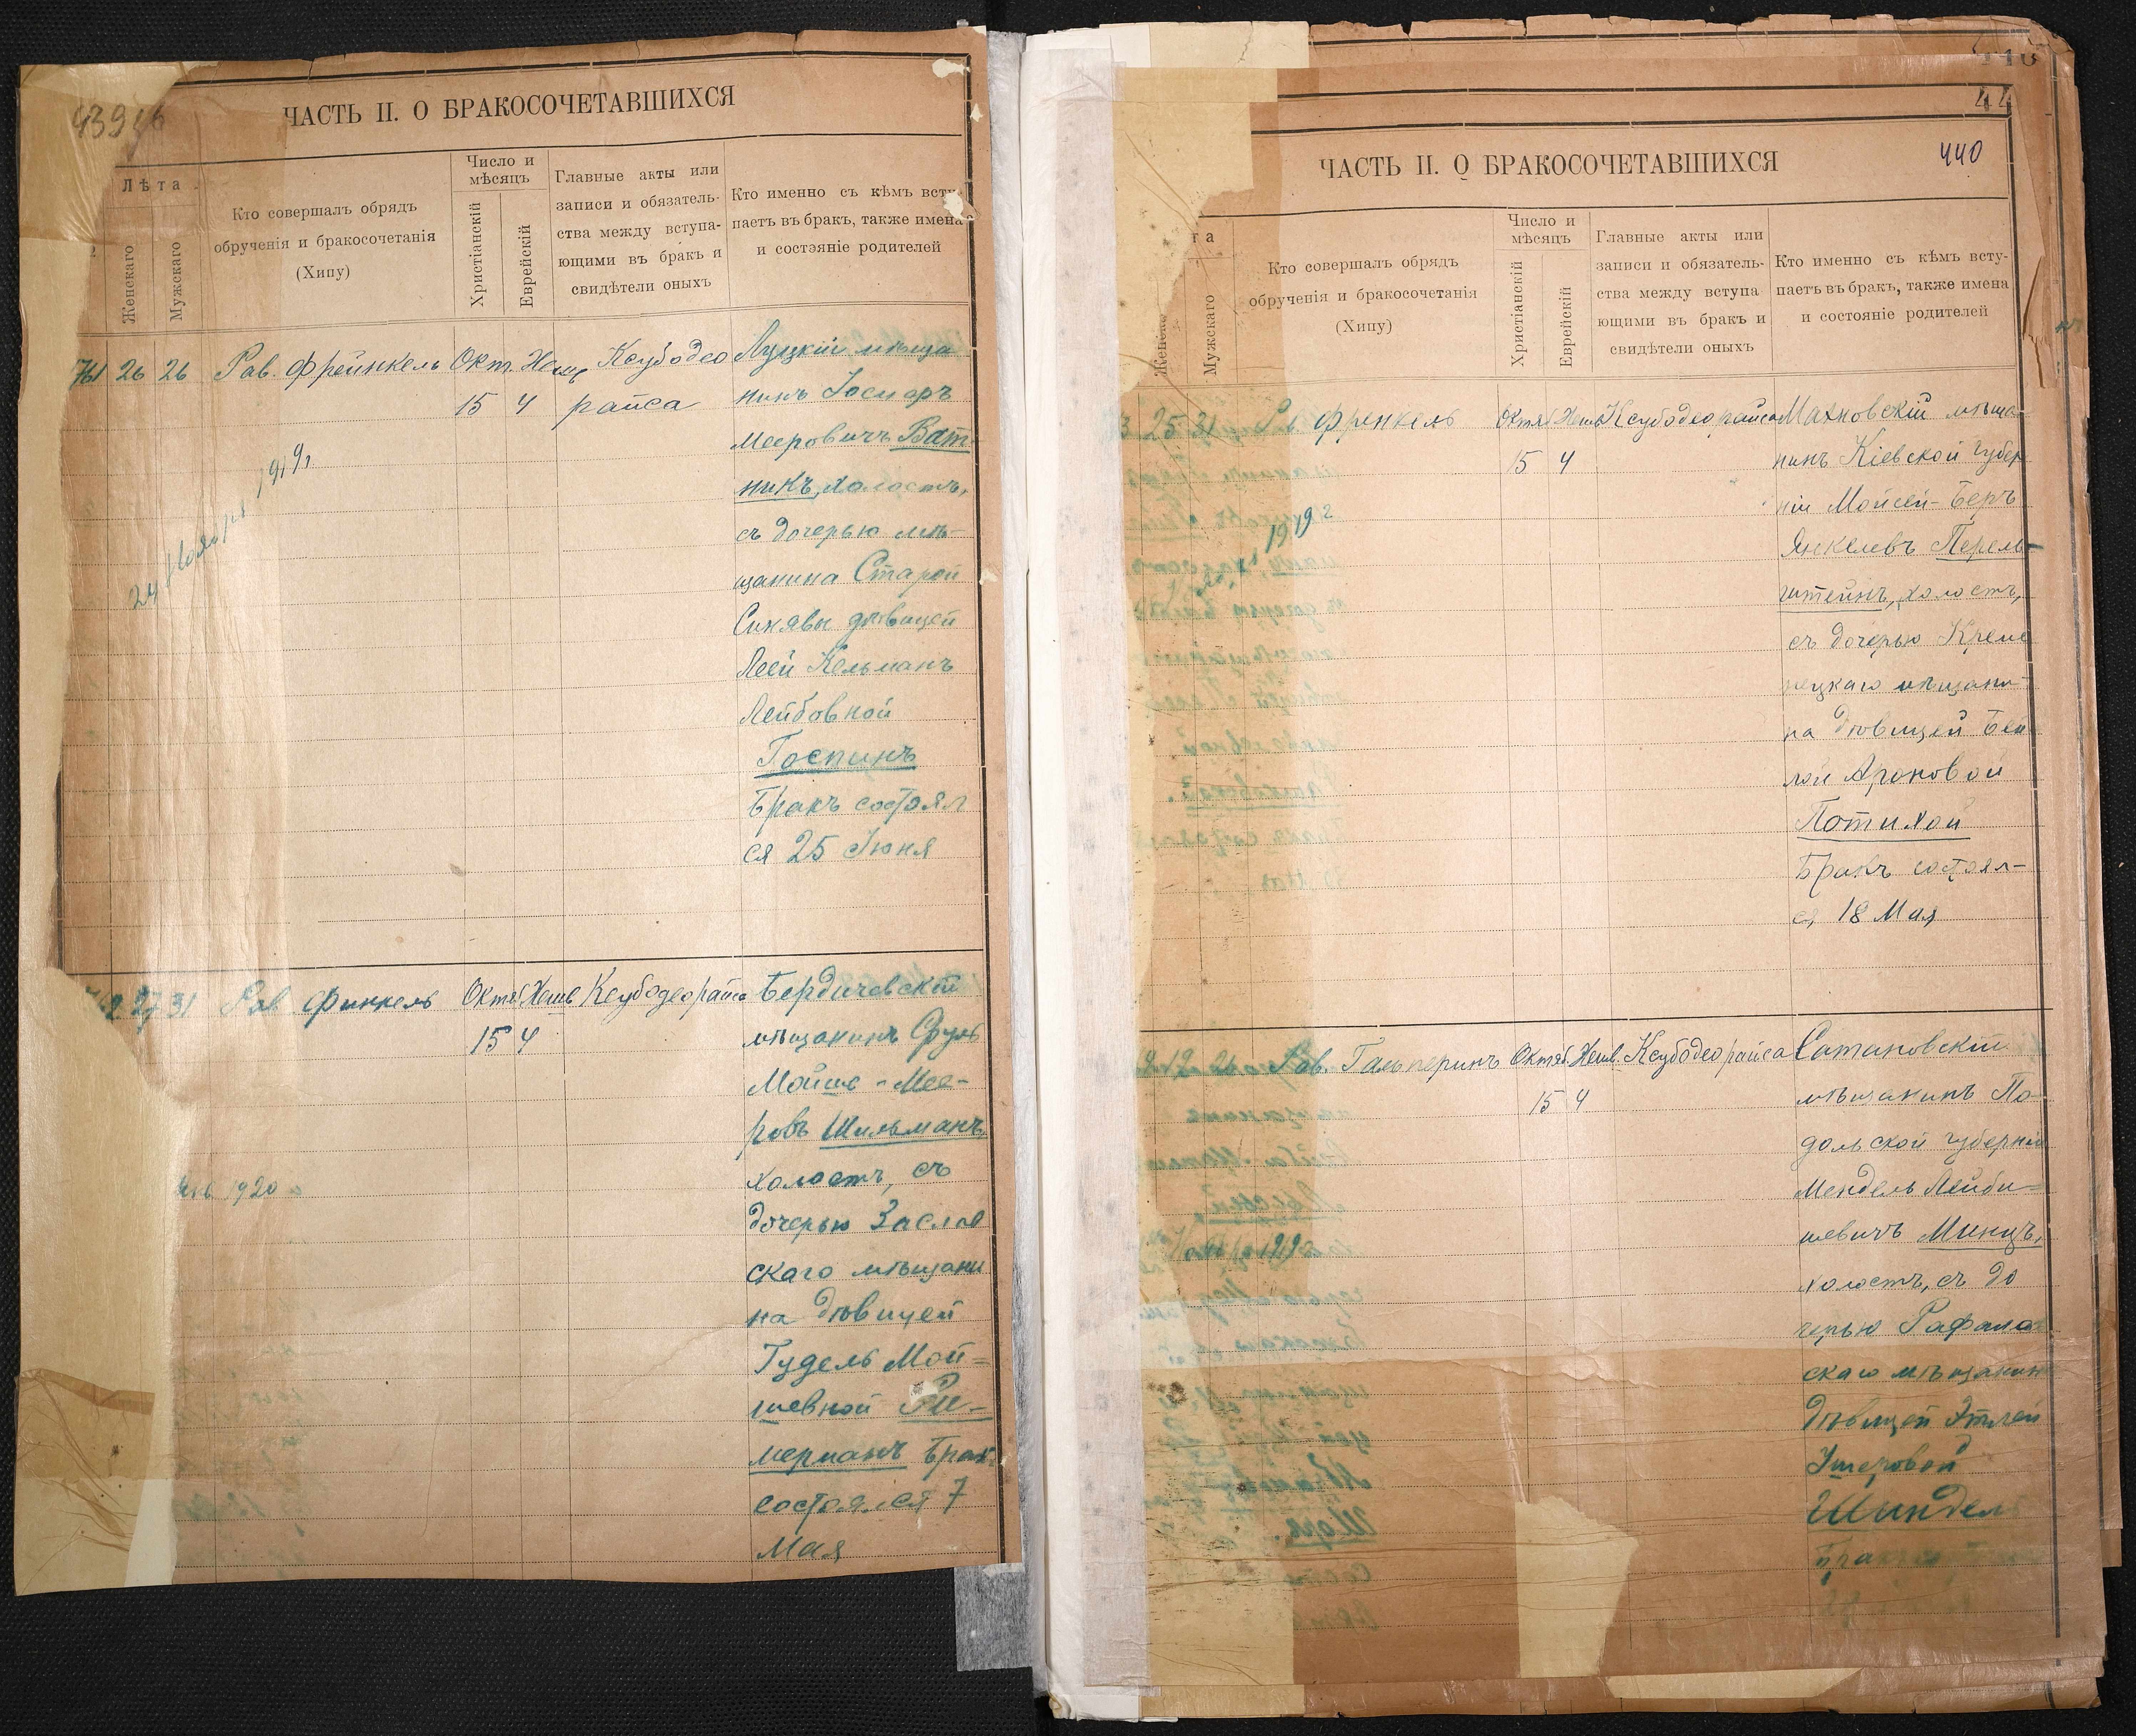 ЧАСТЬ II. О БРАКОСОЧЕТАВШИХСЯ
Лѣта
Женскаго
Мужскаго
Кто совершалъ обрядъ
обрученія и бракосочетанія
(Хипу)
Число и
мѣсяцъ
Христіанскій
Еврейскій
Главные акты или
записи и обязатель-
ства между вступа-
ющими въ бракъ и
свидѣтели оныхъ
Кто именно съ кѣмъ всту-
паетъ въ бракъ, также имена
и состояніе родителей
761 26 26 Рав. Фрейнкель Окт. Хешв Ксубодео
15 4 райса
24 Ноября 1919 г
Луцкій мѣща
нинъ Іосифъ
Мееровичъ Ват-
никъ, холостъ,
съ дочерью мѣ-
щанина Старой
Синявы дѣвицей
Леей Кельманъ
Лейбовной
Госпинъ
Бракъ состоял
ся 25 Іюня
2 27 31 Рав Финкель Октяб Хешв Ксубодеорайса
15 4
1920
Бердичевскій
мѣщанинъ Сруль
Мойше-Мее-
ровъ Шильманъ,
холостъ, съ
дочерью Заслав
скаго мѣщани
на дѣвицей
Гудель Мой=
шевной
мерманъ Брак
состоялся 7
Мая
440
ЧАСТЬ II. О БРАКОСОЧЕТАВШИХСЯ
Мужскаго
Кто совершалъ обрядъ
обрученія и бракосочетанія
(Хипу)
Число и
мѣсяцъ
Христіанскій
Еврейскій
Главные акты или
записи и обязатель-
ства между вступа
ющими въ бракъ и
свидѣтели оныхъ
Кто именно съ кѣмъ всту-
паетъ въ бракъ, также имена
и состояніе родителей
3 25 31 Рав. Френкель Октяб Хешв Ксубодеорайса
15 4
1919 г
Махновскій мѣща-
нинъ Кіевской губер
ніи Мойсей-Беръ
Янкелевъ Перель-
штейнъ, холостъ,
съ дочерью Креме
нецкаго мѣщани
на дѣвицей Бей
лой Ароновой
Потихой
Бракъ состоял-
ся 18 Мая
Рав. Гальперинъ Октяб. Хешв. Ксубодеорайса
15 4
Сатановскій
мѣщанинъ По-
дольской губерніи
Мендель Лейби=
шевичъ Минцъ,
холостъ, съ до
черью Рафалов
скаго мѣщанин
дѣвицей Этлей
Ушеровой
Шиндел
Бракъ